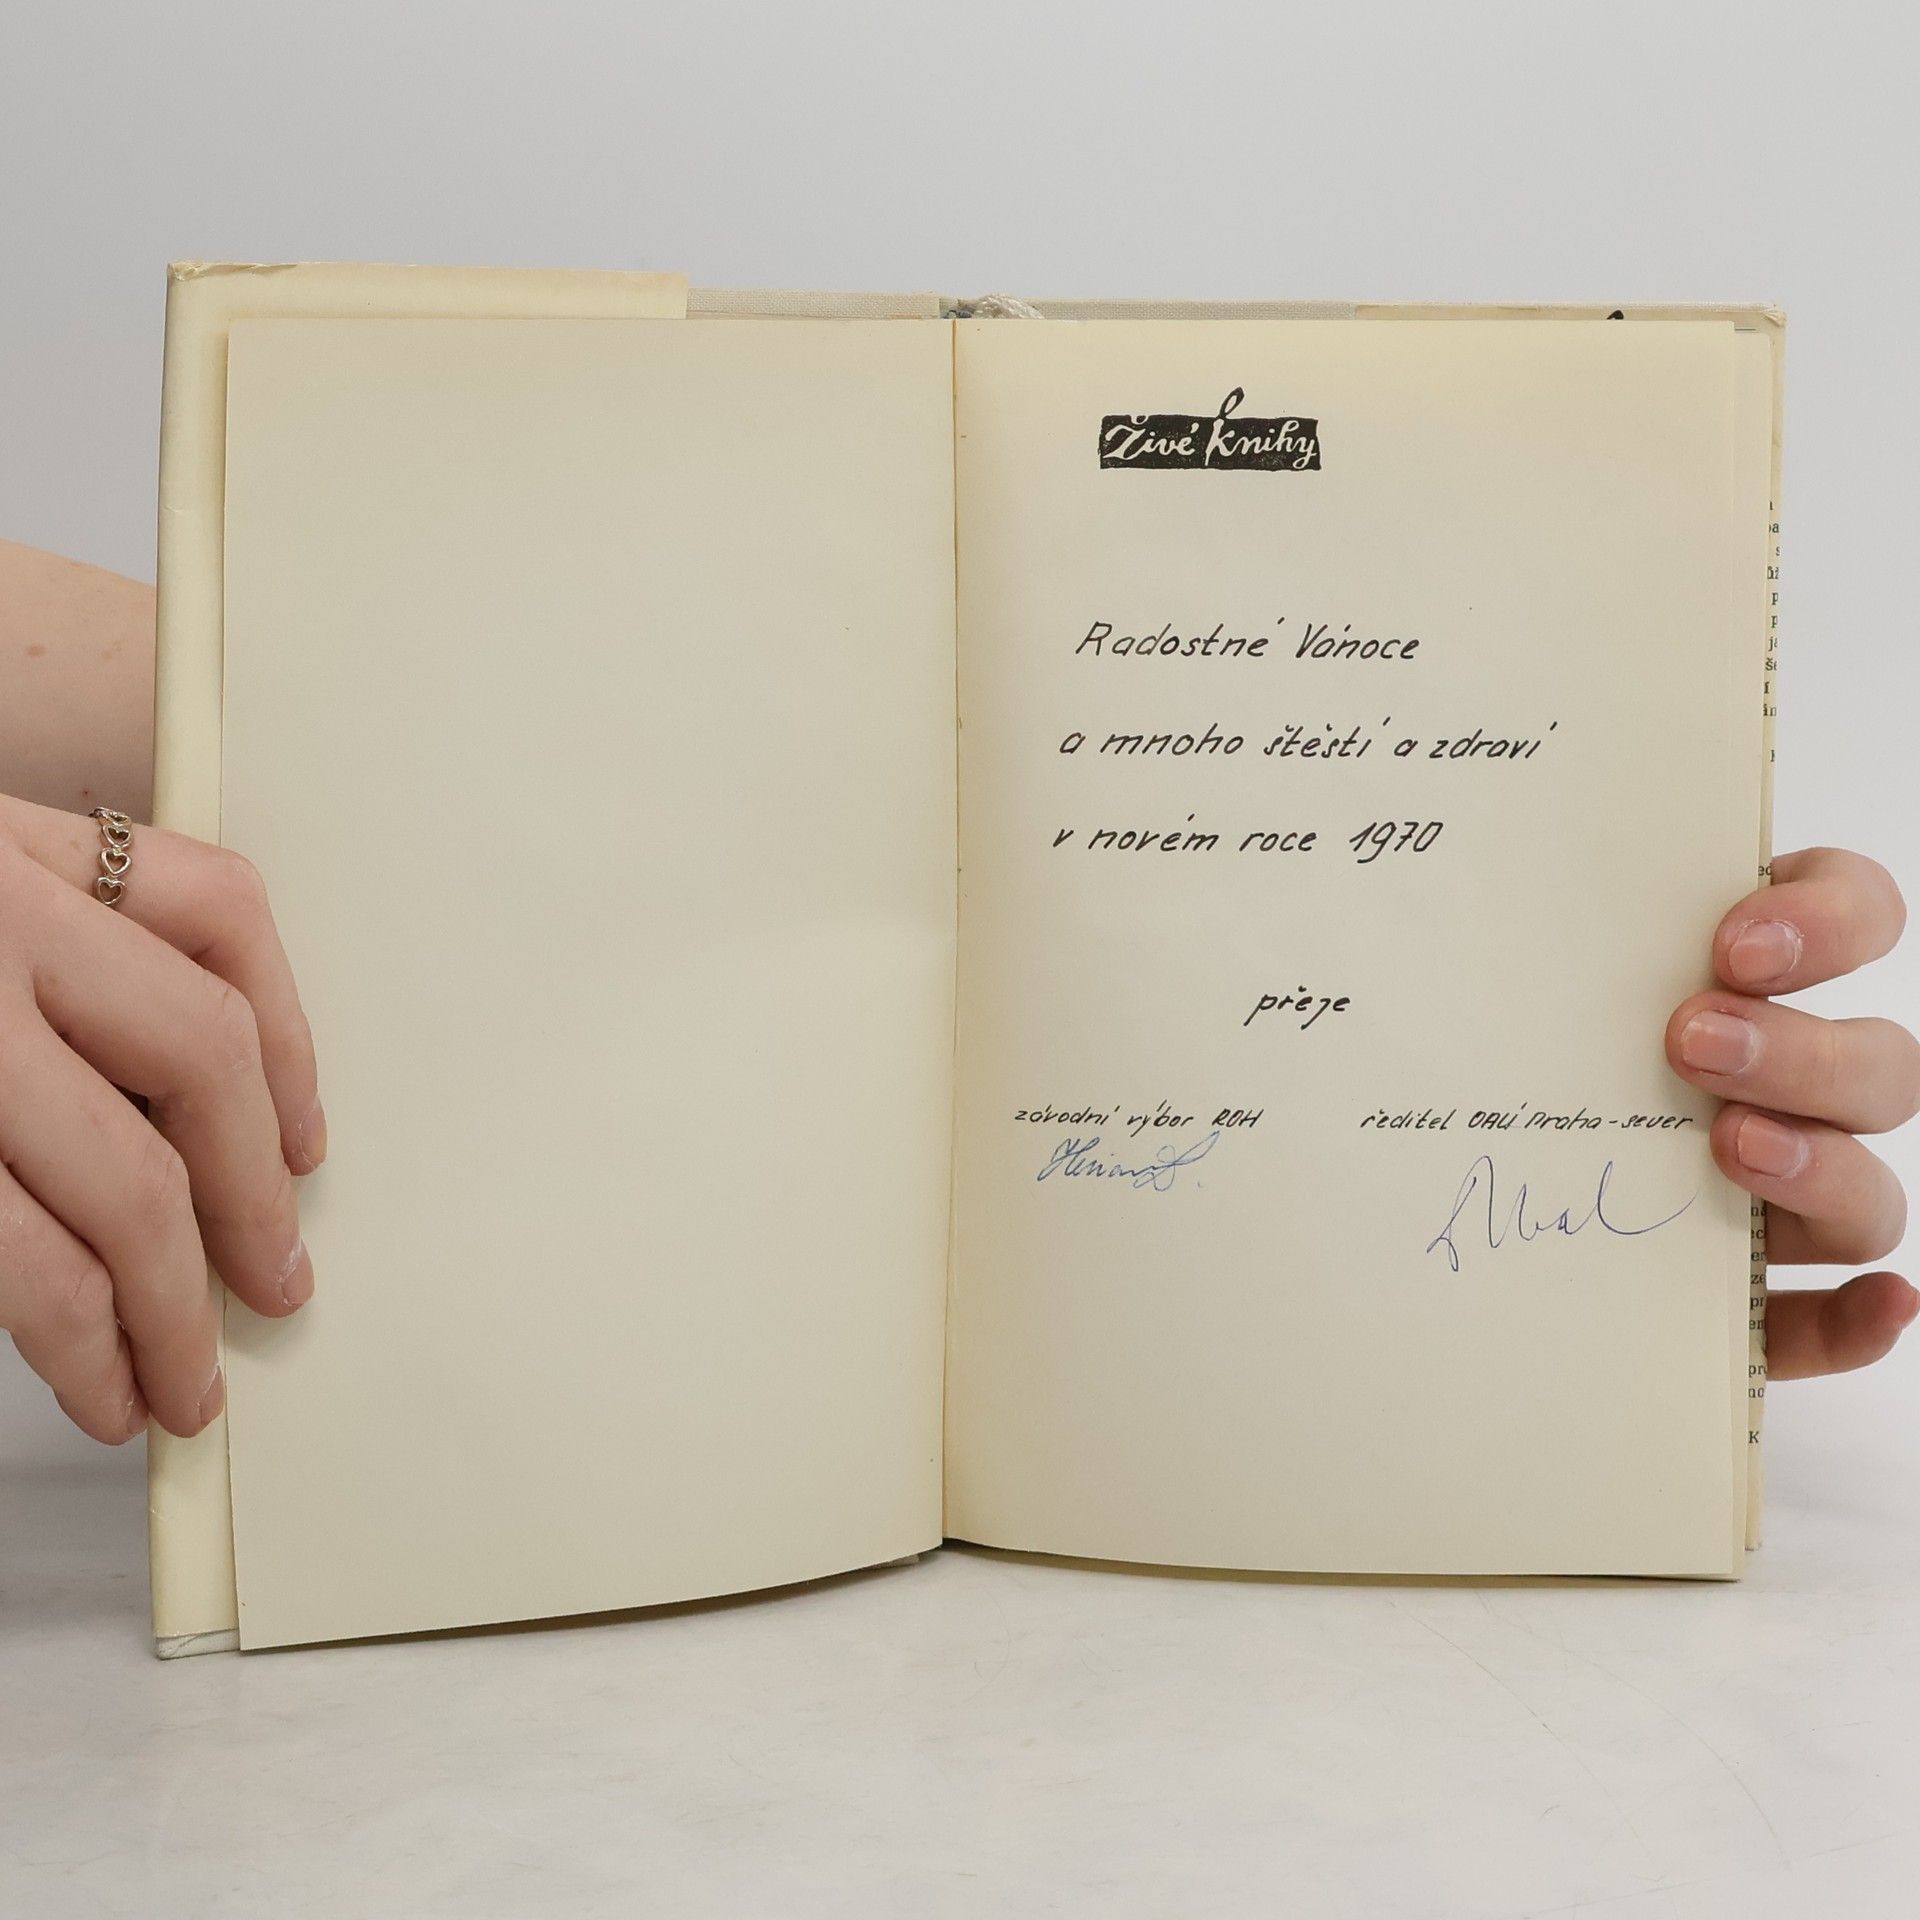 Živé knihy
Radostné Vánoce
a mnoho štěstí a zdraví
v novém roce 1970
přeje
závodní výbor ROH
ředitel OALÚ Praha-sever